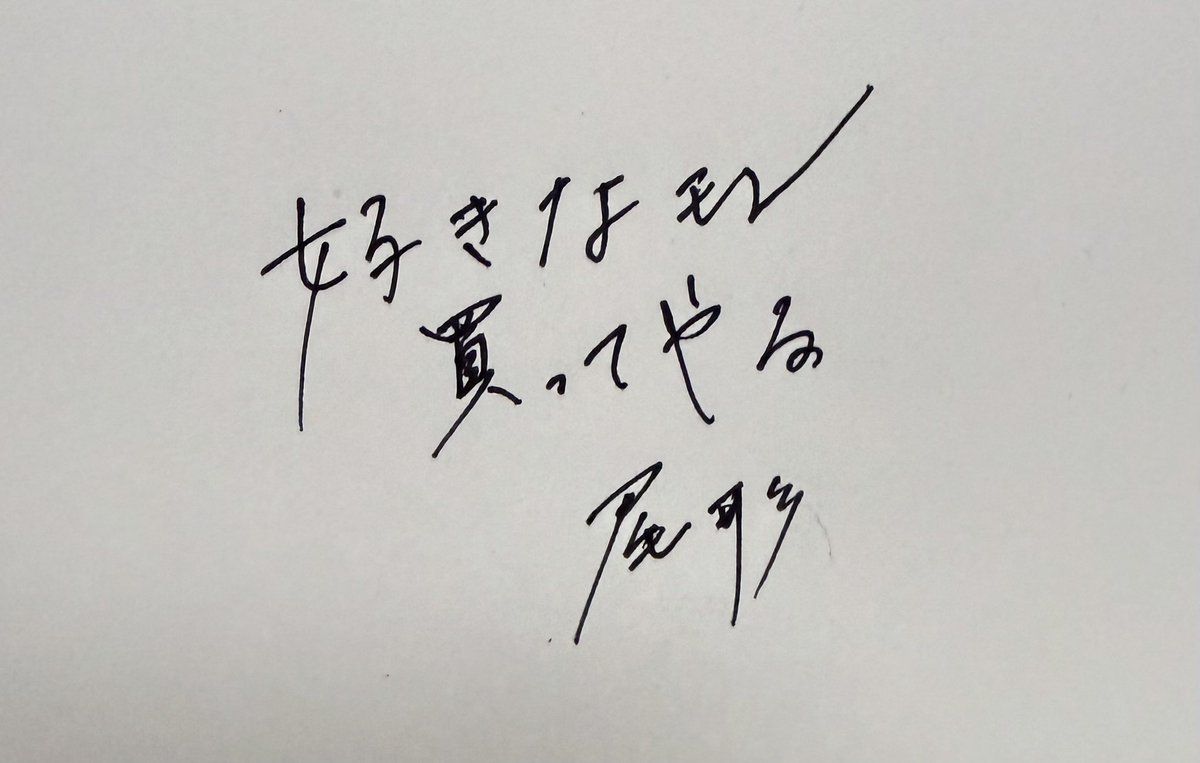 好きなモン
買ってやる
尾形